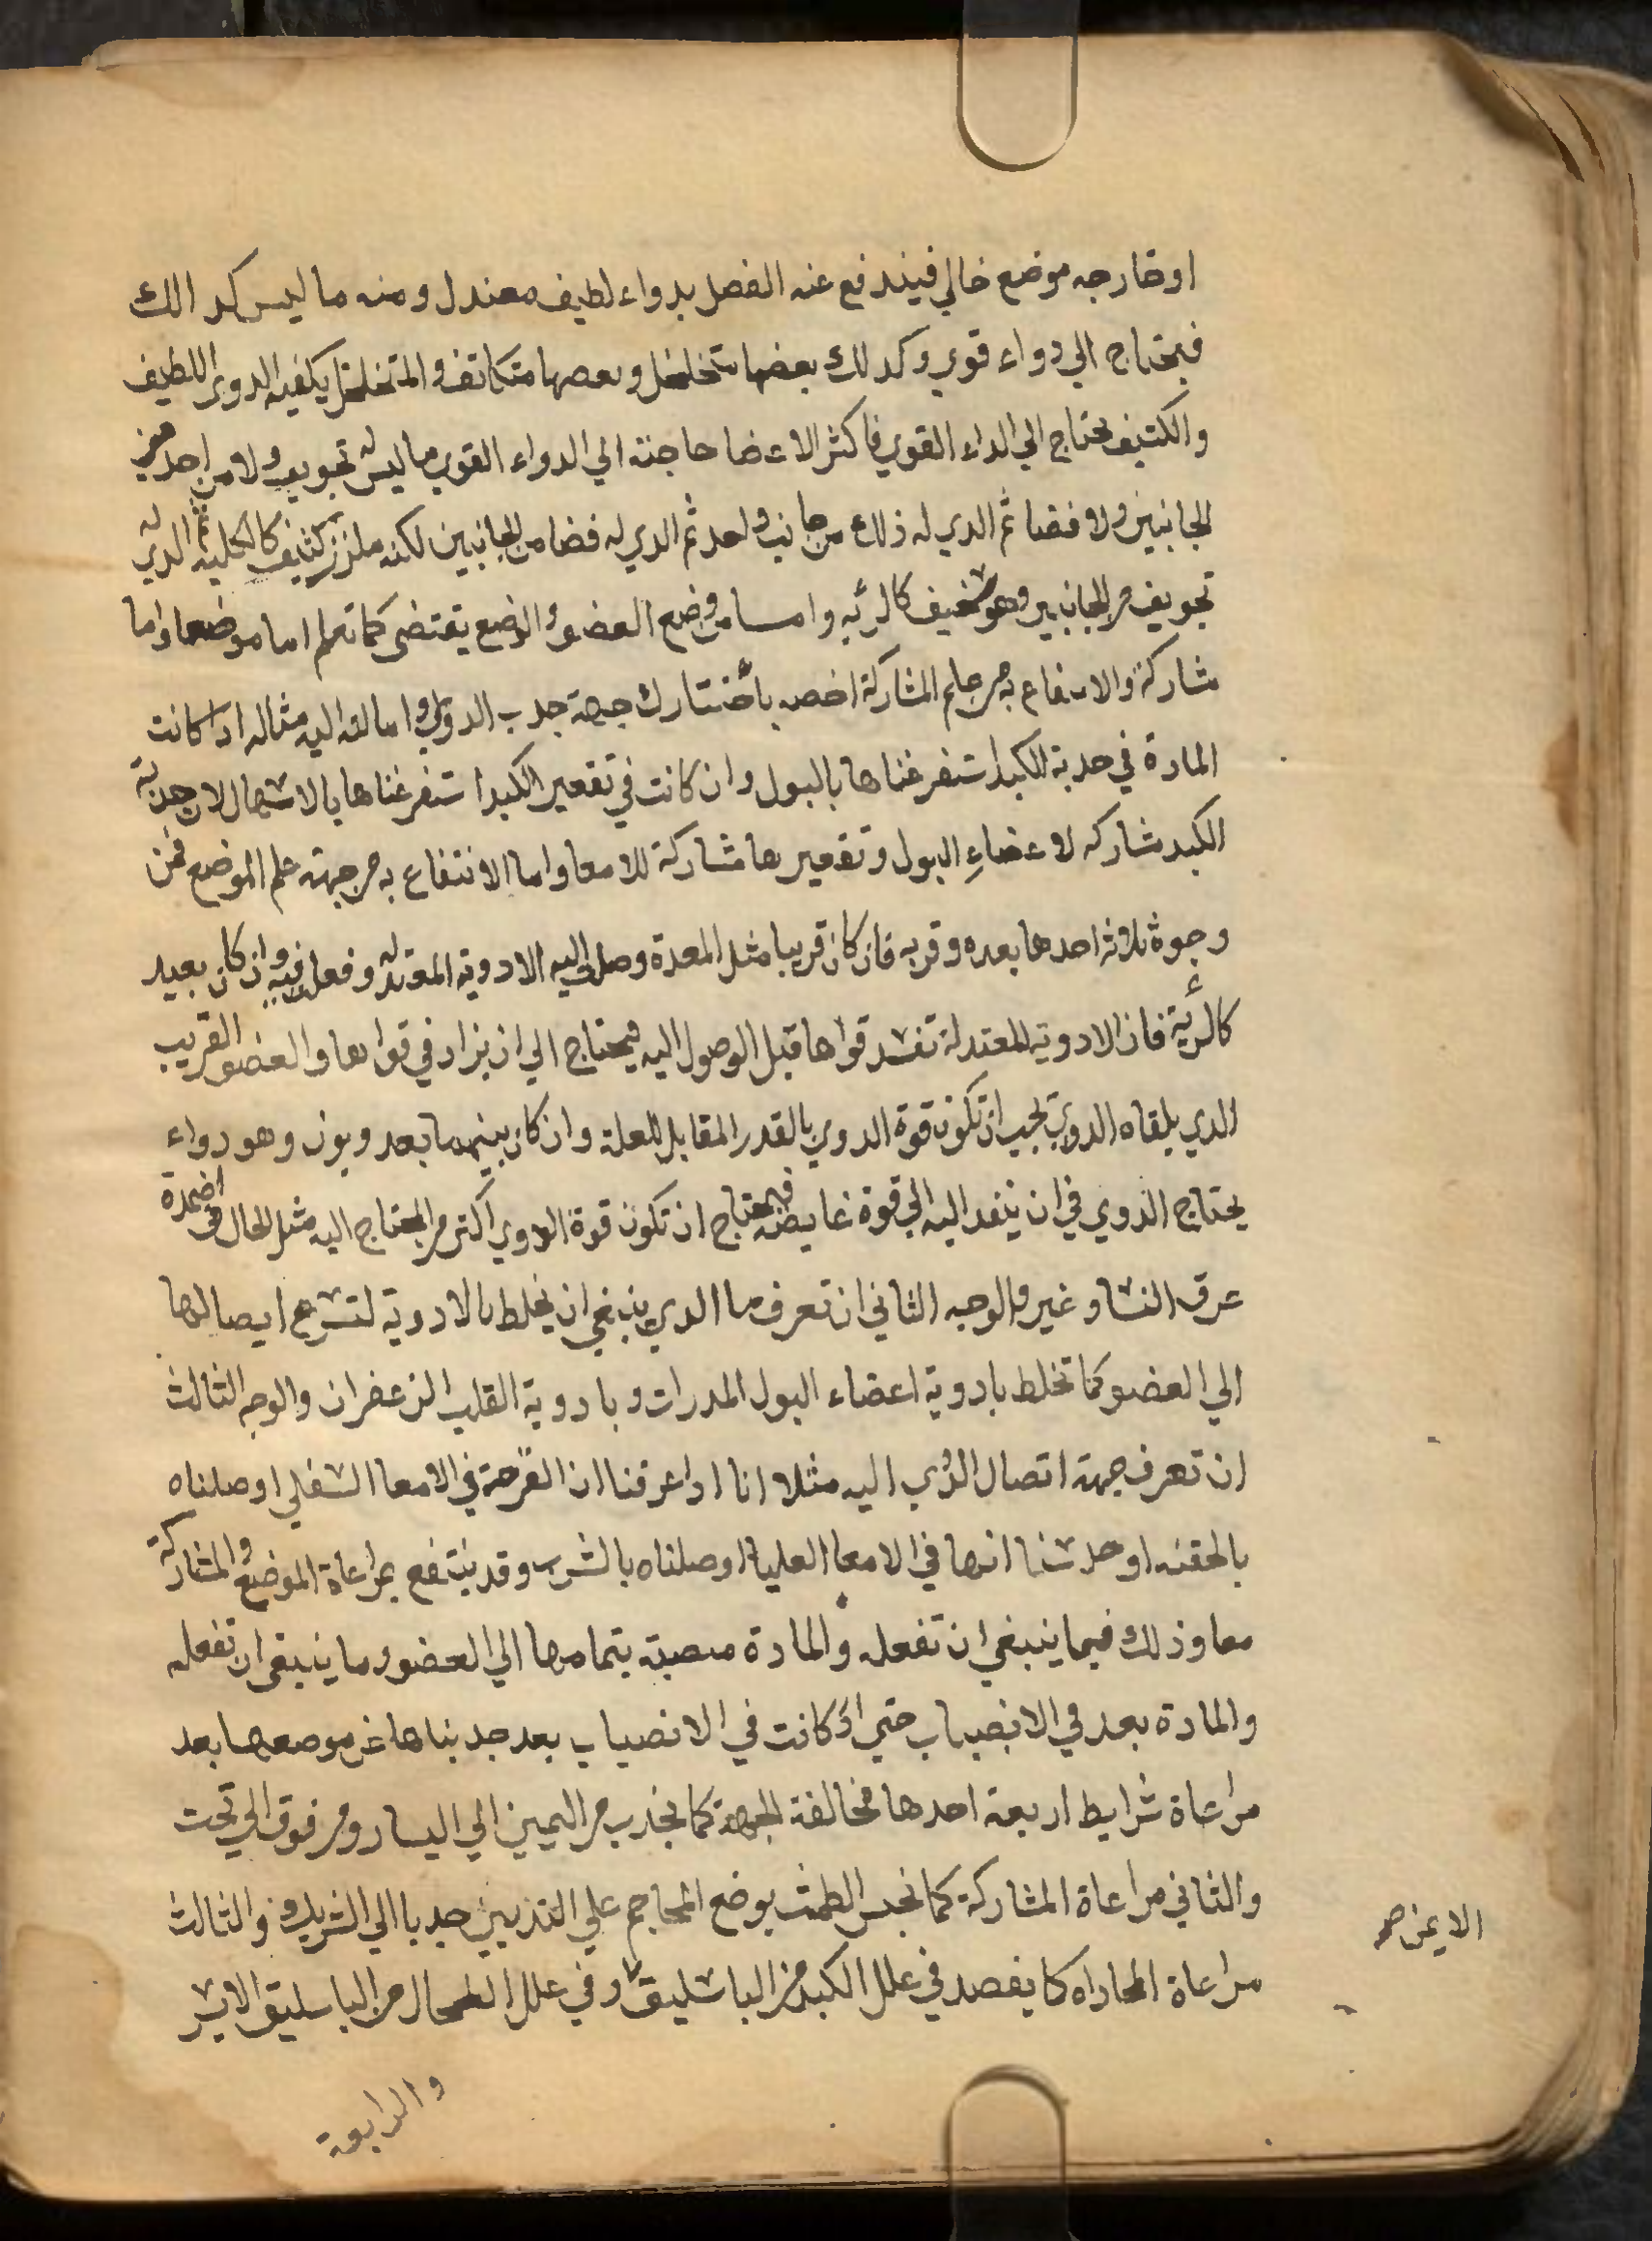 اوخارجه موضع خالي فيندفع عنه الفصل بدواء لطيف معتدل ومنه ما ليس كدالك
فيحتاج الي دواء قوي وكدلك بعضها متخلخل وبعصها متكاتف والمتخلخل يكفيه الدوى اللطيف
والكتيف يحتاج الي الداء القوي فاكثر الاعضا حاجته الي الدواء القوي ما ليس له تجويف ولا من احد من
الجانبين ولا فضا ثم الدي له ذلك من جانب واحد ثم الدي له فضا من الجانبين لكنه ملزز كثيف كالكلية ثم الدي له
تجويف من الجانبين وهو سخيف كالرئيه وامسا من وضع العضو والوضع يقتضى كما تعلم اما موضعا واما
مشاركة والانتفاع به من علم المشاركة اخصه بأختيارك جهة جدب الدوي وامالته اليه مثاله ادا كانت
المادة في حدبة الكبد استفرغناها بالبول وان كانت في تقعير الكبد استفرغناها بالاسهال لان حدبة
الكبد مشاركه لاعضاءِ البول وتقعيرها مشاركة للامعا واما الانتفاع به من جهة علم الموضع فمن
وجوة ثلاثه احدها بعده وقربه فان كان قريبا مثل المعدة وصلت اليه الادوية المعتدله وفعلت فيه وان كان بعيد
كالرئية فان الادوية المعتدلة تفسد قواها قبل الوصول اليه فيحتاج الي ان يزاد في قواها والعضو القريب
الدي يلقاه الدوي يجب ان تكون قوة الدوي بالقدر المقابل للعلة وان كان بينهما بعد وبون وهو دواء
يحتاج الدوي في ان ينفد اليه الي قوة غايصة فيحتاج ان تكون قوة الدوي اكتر من المحتاج اليه مثل الحال في اضمدة
عرق النسا وغيره والوجه الثاني ان تعرف ما الدي ينبغي ان يخلط بالادوية لتسرع ايصالها
الي العضو كما تخلط بادوية اعضاء البول المدرات وبادوية القلب الزعفران والوجه الثالث
ان تعرف جهة اتصال الدوي اليه مثلا انا ادا عرفنا ان القرحة في الامعا السفلي اوصلناه
بالحقنه او حدسنا انها في الامعا العليا اوصلناه بالشرب وقد ينتفع بمراعاة الموضع والمشاركة
معا وذلك فيما ينبغي ان تفعله والمادة منصبة بتمامها الي العضو وما ينبغى ان تفعله
والمادة بعد في الانصباب حتي ادا كانت في الانصباب بعد جدبناها عن موصعها بعد
مراعاة شرايط اربعة احدها مخالفة الجهة كما يجذب من اليمين الي اليسار ومن فوق الي تحت
والثاني مراعاة المشاركة كما نحبس الطمث بوضع المحاجم علي الثديين جدبا الي الشريك والثالث
مراعاة المحاداه كما يفصد في علل الكبد من الباسليق وفي علل الطحال من الباسليق الايسر
الايمن صح
والرابعة